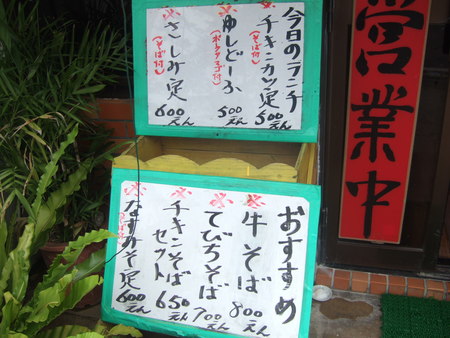 今日のランチ
※チキンカツ定
(そば付)
500えん
※ゆしどーふ
500えん
※さしみ定
(そば付)
600えん
おすすめ
※牛そば
800えん
※てびちそば
700えん
※チキンそば
セット
650えん
※なすみそ定
600えん
営業中